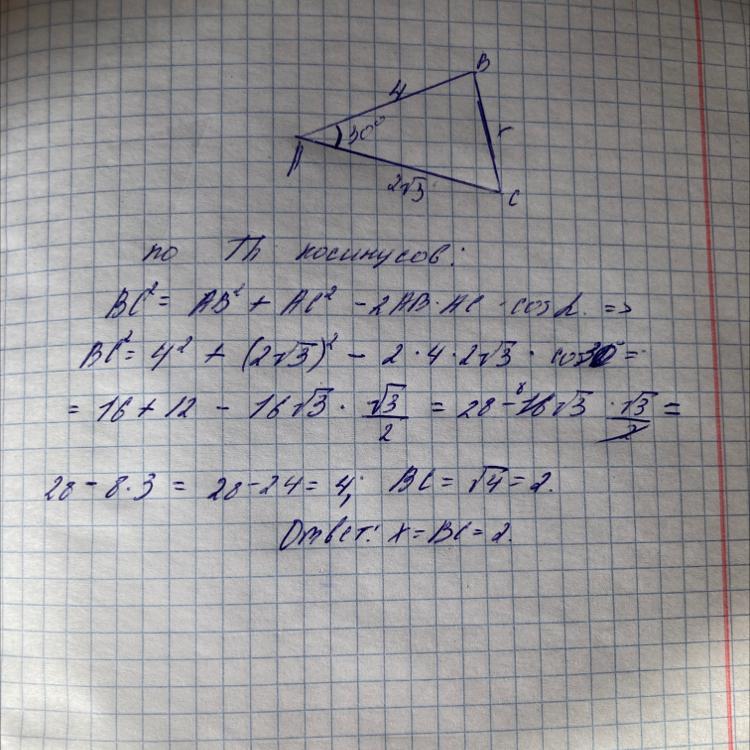 B
4
30°
A
2√3
C
по Th косинусов:
BC² = AB² + AC² - 2AB·AC·cos α =>
BC² = 4² + (2√3)² - 2·4·2√3·cos30° =
= 16 + 12 - 16√3 · √3/2 = 28 - 16√3 · √3/2 =
28 - 8·3 = 28 - 24 = 4; BC = √4 = 2.
Ответ: x = BC = 2.